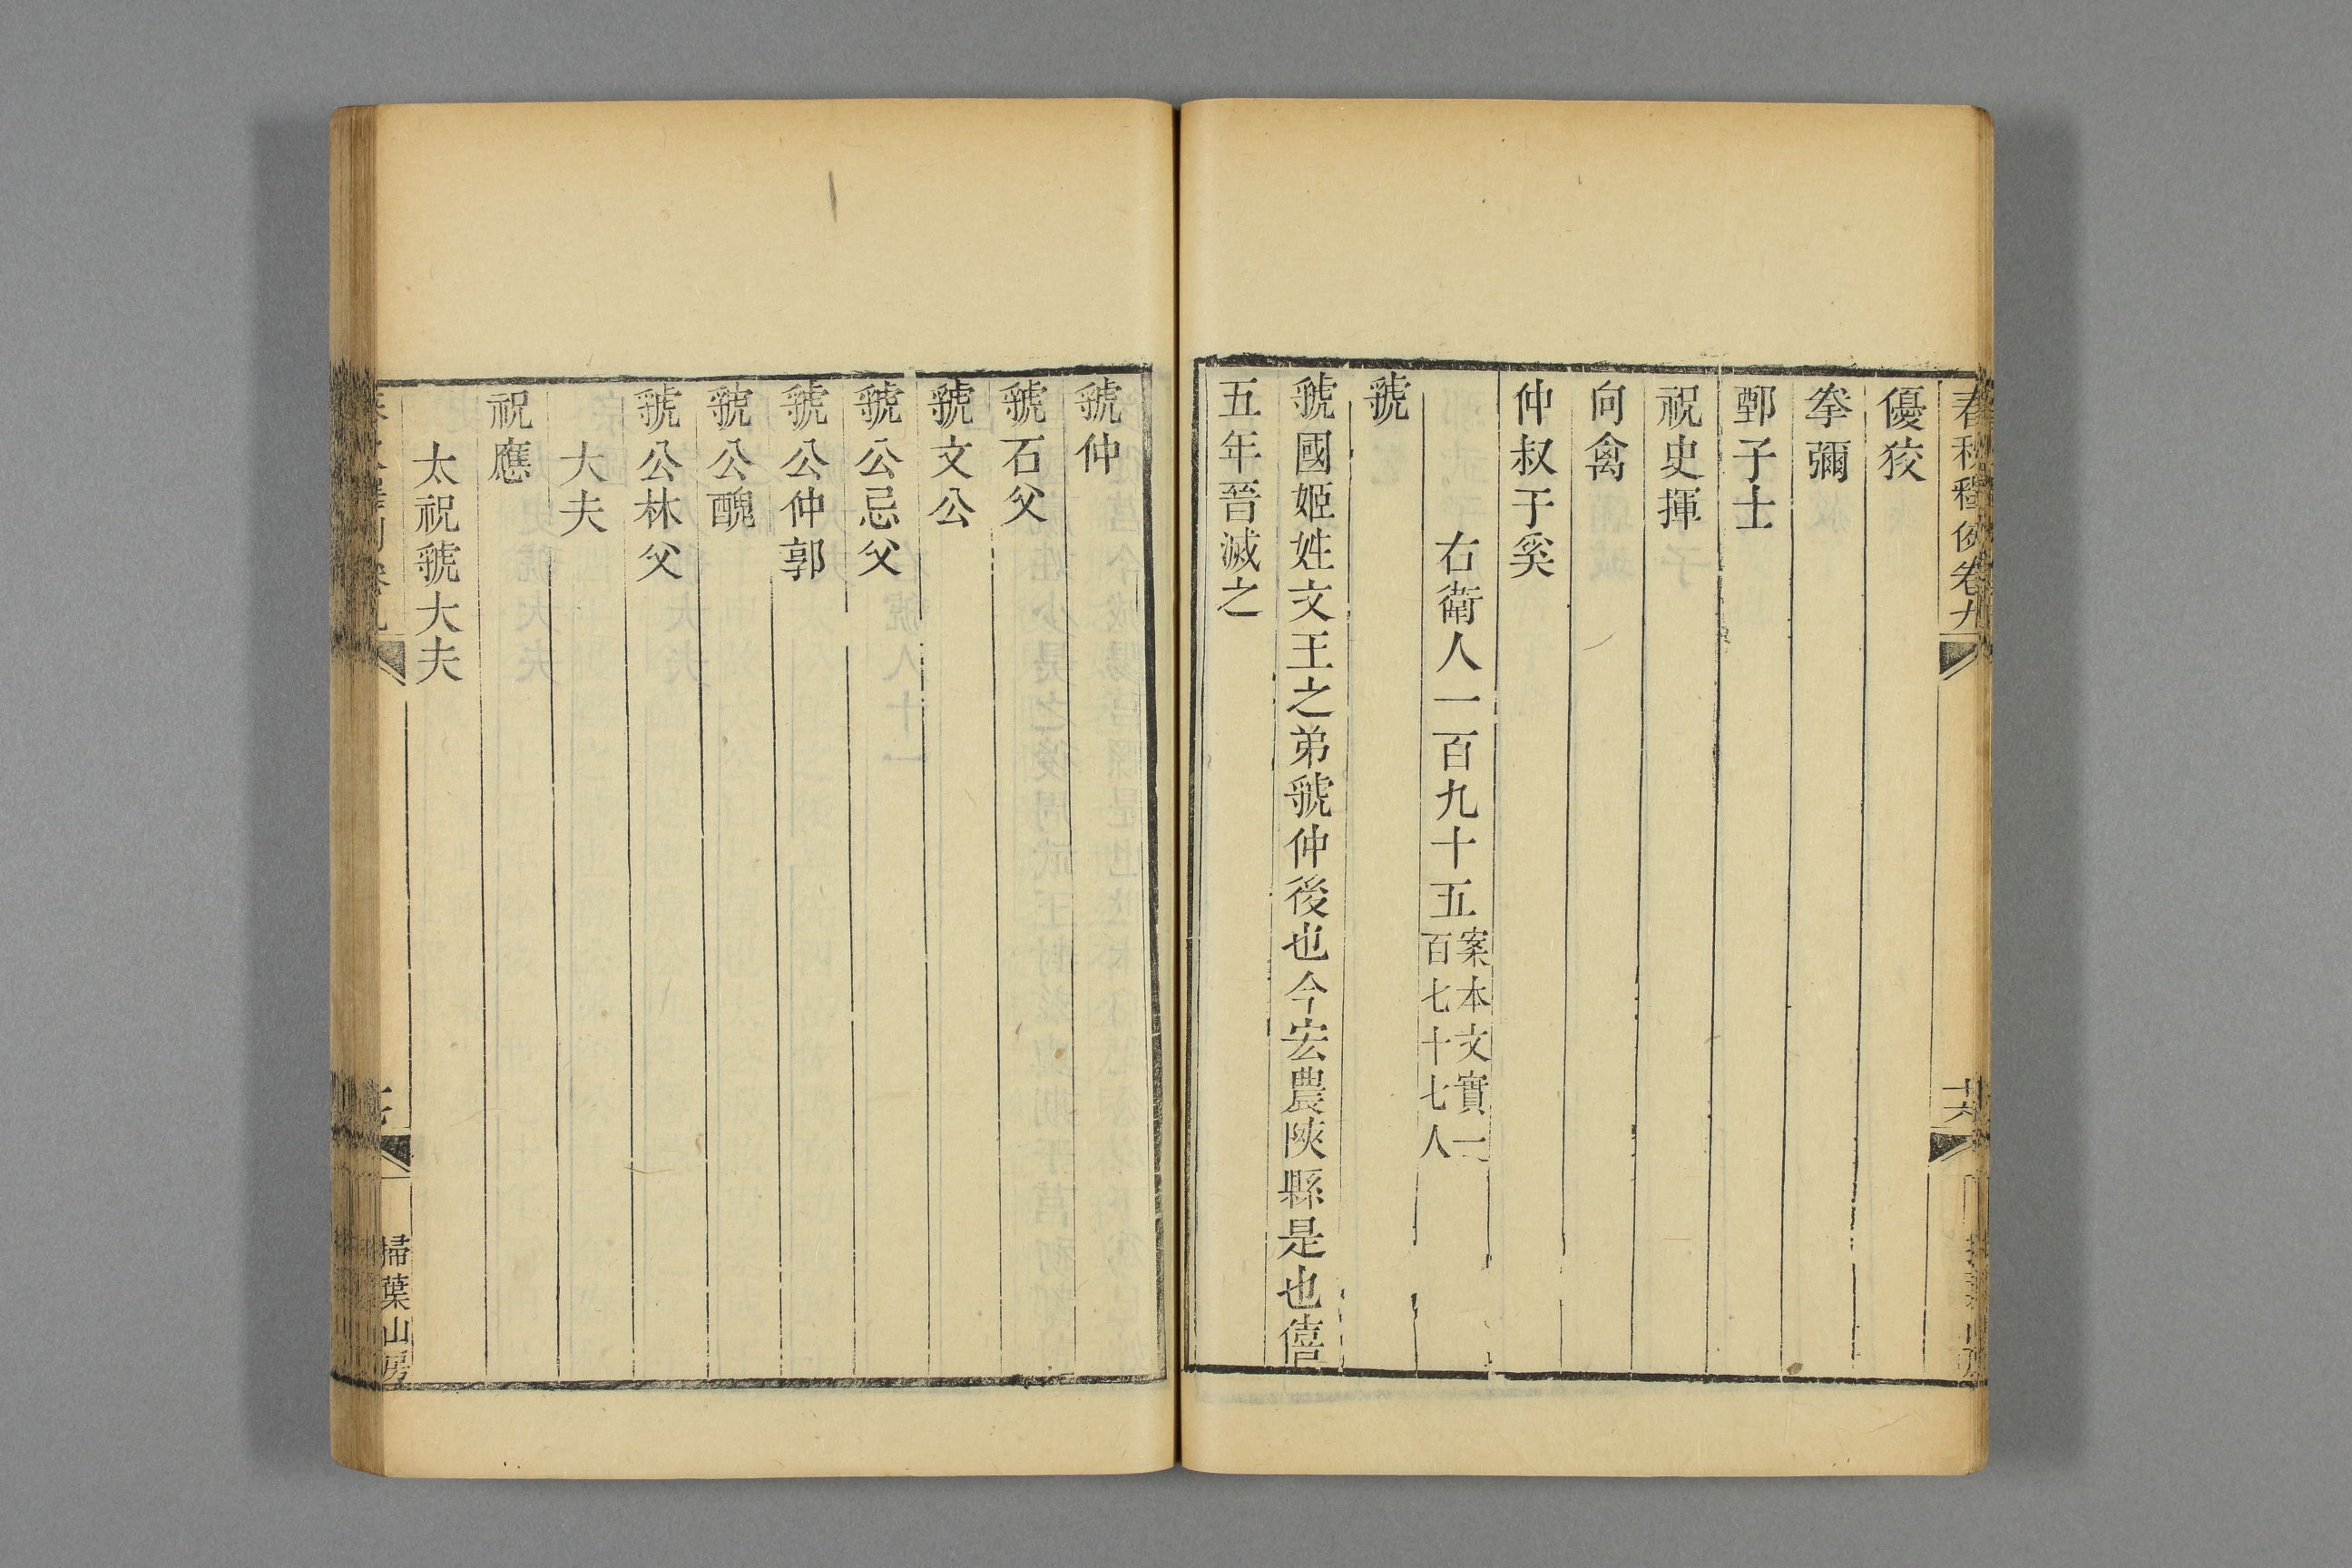 春秋釋例卷九
優狡
拳彌
鄄子士
祝史揮
向禽
仲叔于奚
右衛人一百九十五
案本文實一
百七十七人
虢
虢國姬姓文王之弟虢仲後也今宏農陝縣是也僖
五年晉滅之
虢仲
虢石父
虢文公
虢公忌父
虢公仲郭
虢公醜
虢公林父
大夫
祝應
太祝虢大夫
掃葉山房